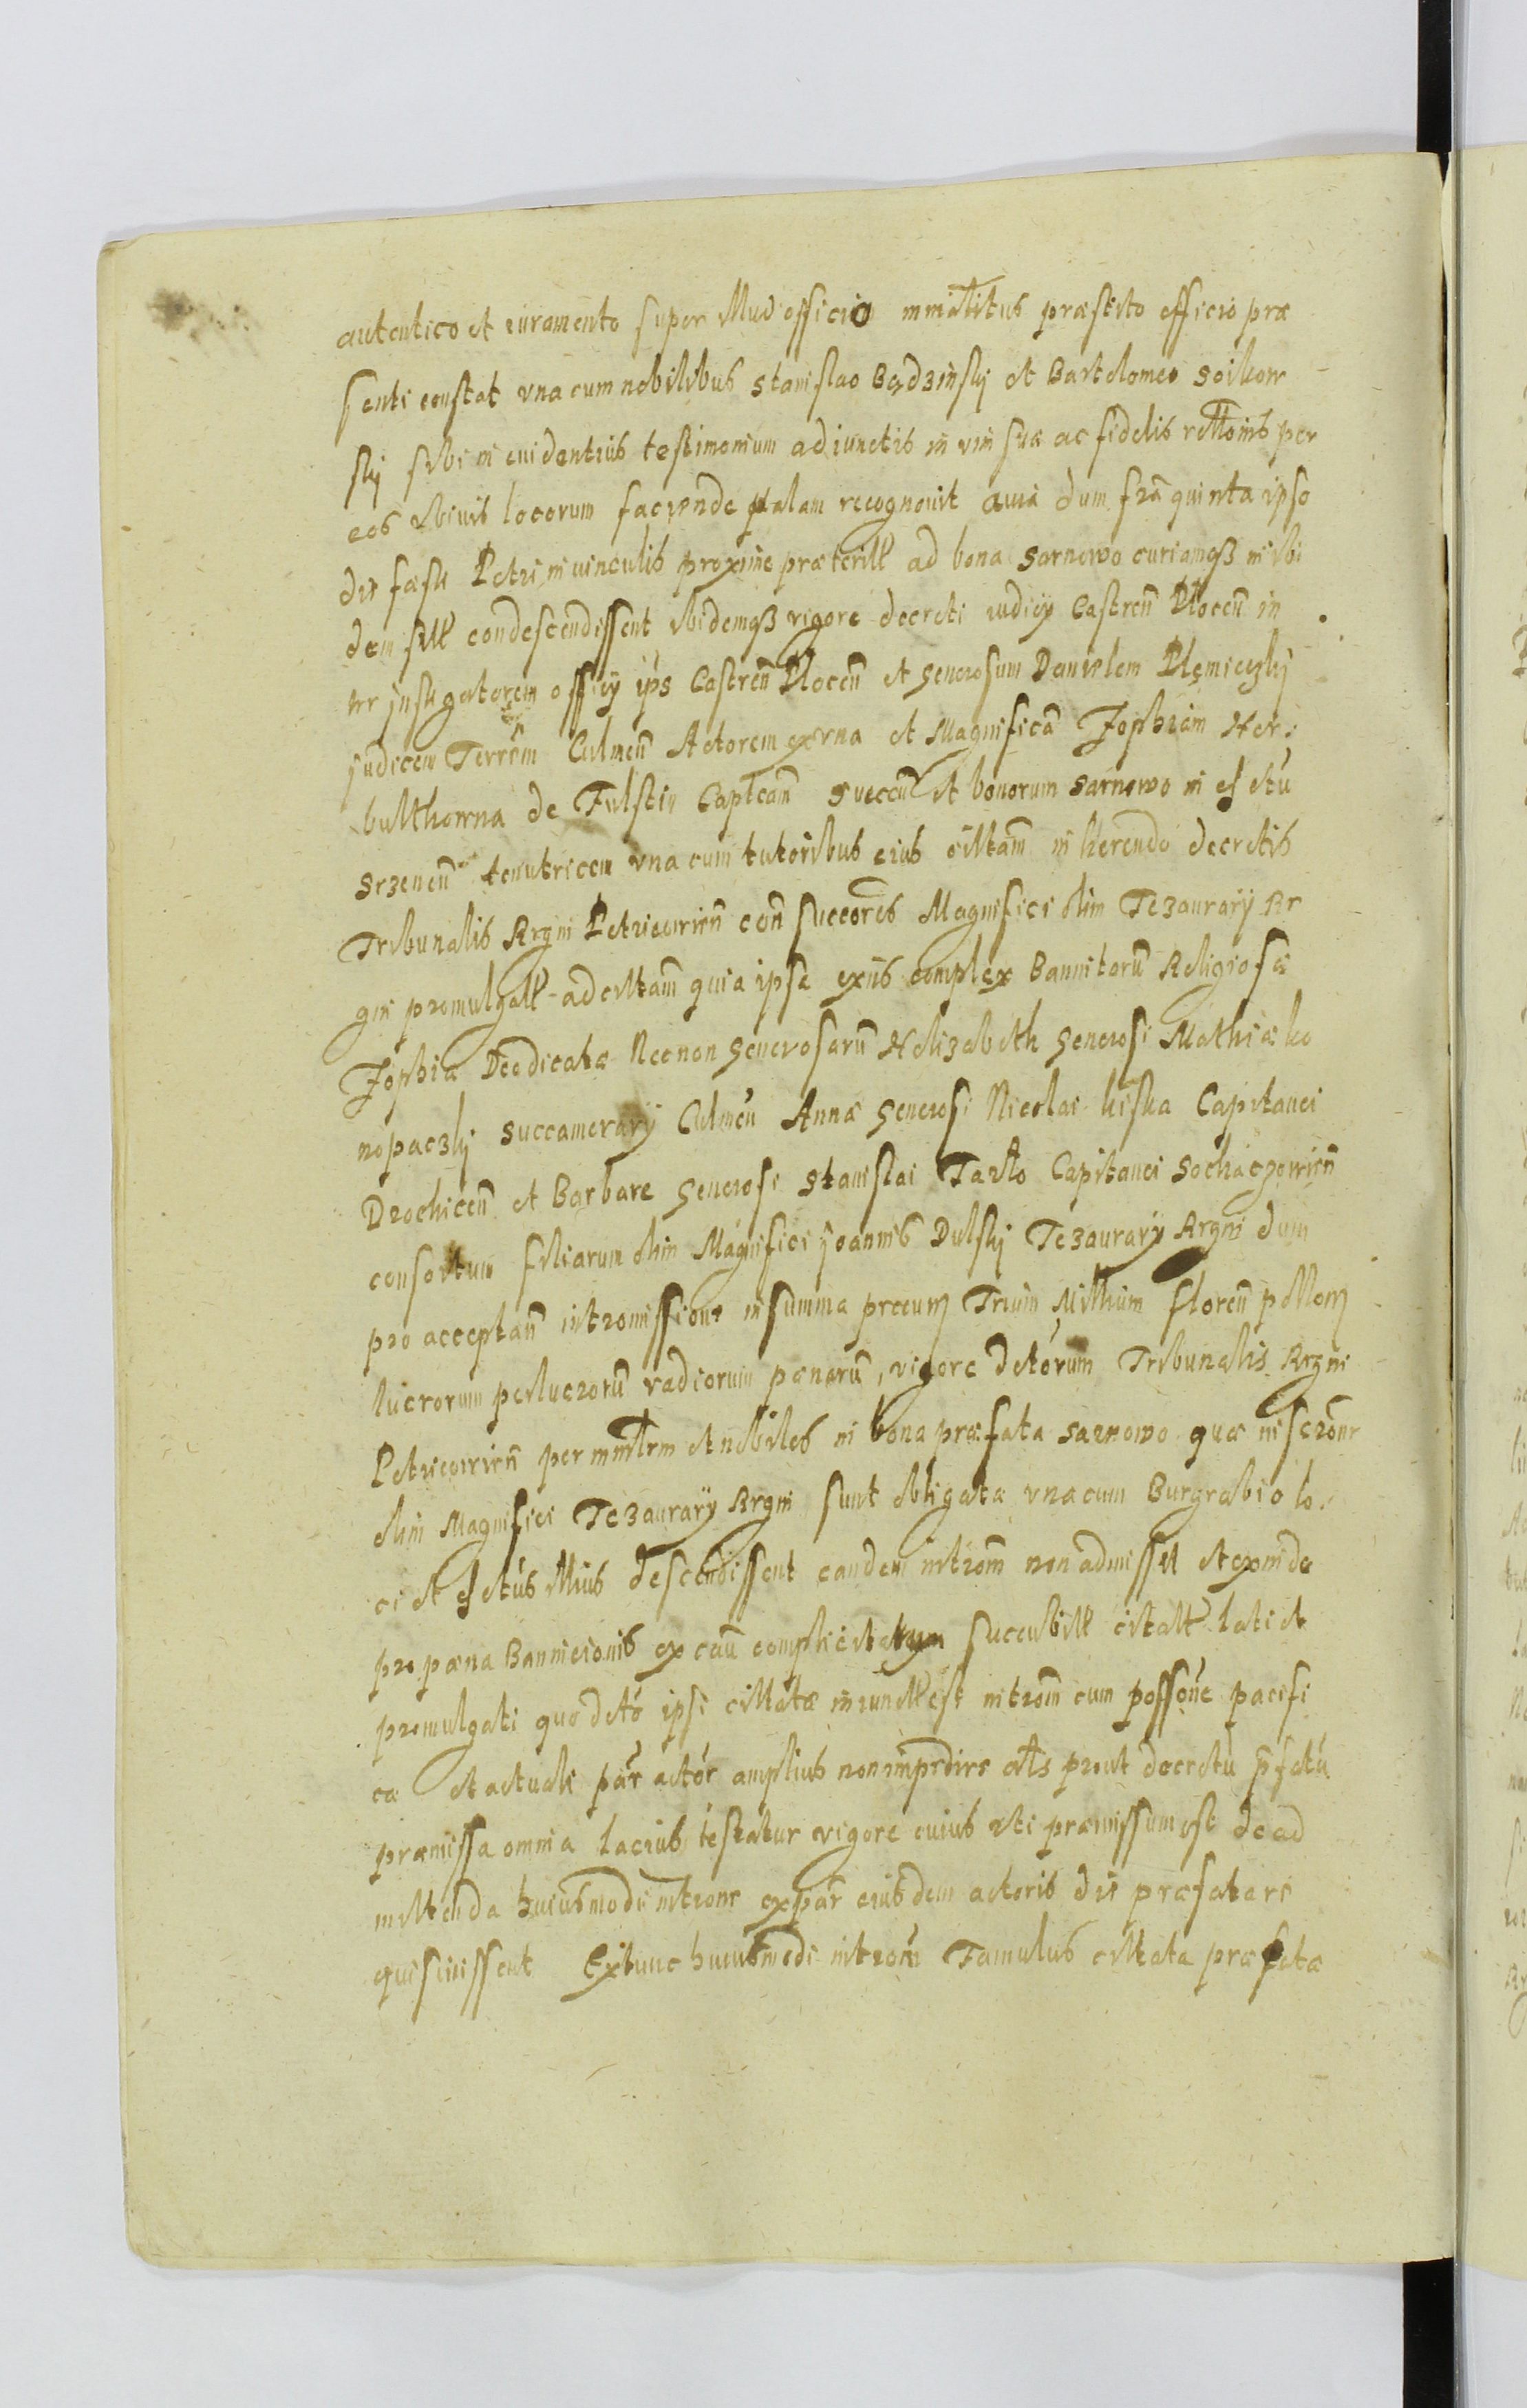 autentico et iuramento super illud officio minâlitus præstito officio præ
senti constat vna cum nobilibus Stanislao Bądzinskij et Bartolomeo Soikow
skij sibi in euidentius testimonium adiunctis in vim suæ ac fidelis rellonis per
eos vbiuis locorum faciende palam recognouit quia dum fria quinta ipso
die festi Petri in vinculis proxime præterill ad bona Sarnowo curiamqʒ inibi
dem sill condescendissent ibidemqʒ rigore decreti iudicij Castren Plocen in
ter insligatorem officij ips Castren Plocen et Generosum Danielem Plemieczkij
Judicem Terrem Culmen Actorem ex vna et Magnificā Zophiam Her
bulthowna de Fulstin Capteam Sueccn et bonorum Sarnowo in dstctu
Srzenen tenutricem vna cum tutoribus eius cittam in herendo decretis
Tribunalis Regni Petricouien con succores Magnifici olim Tezaurarij Re
gni promulgall ad cittam quia ipsa exiis complex Bannitorū Religiosæ
Zophia Deodicatæ Necnon Generosarū Helizabeth Generosi Mathiæ ko
nopaczkij Succamerarij Culmen Annæ Generosi Nicolai kiska Capitanei
Drohicen et Barbare Generosi Stanislai Tarlo Capitanei Sochaczowien
consortum filiarum olim Magnifici Joannis Dulskij Tezaurarij Regni dum
pro acceptan intromissione in summa pecun Trium Millium floren pollon
lucrorum perlucrorū vadiorum pænarū, vigore dctorum Tribunalis Regni
Petricouien per mintrm et nobiles in bona præfata Sarnowo quæ in serone
olim Magnifici Tezaurarij Regni sunt obligata vna cum Burgrabio lo
ci et dstctus illius descendissent eandem introm non admissit et exinde
pro pæna Bannicionis ex cau complicitatum succubill citatt lati et
promulgati quo dcto ipsi cittatæ iniunctt est introm cum possone pacifi
ca et actuali par actor amplius non impedire alts prout decretū pfatū
præmissa omnia lacius testatur vigore cuius vti præmissum est de ad
mittenda huiusmodi introne ex par eiusdem actoris die præfata re
quisiuissent Extunc huiusmodi introni Famulus cittata præfatæ